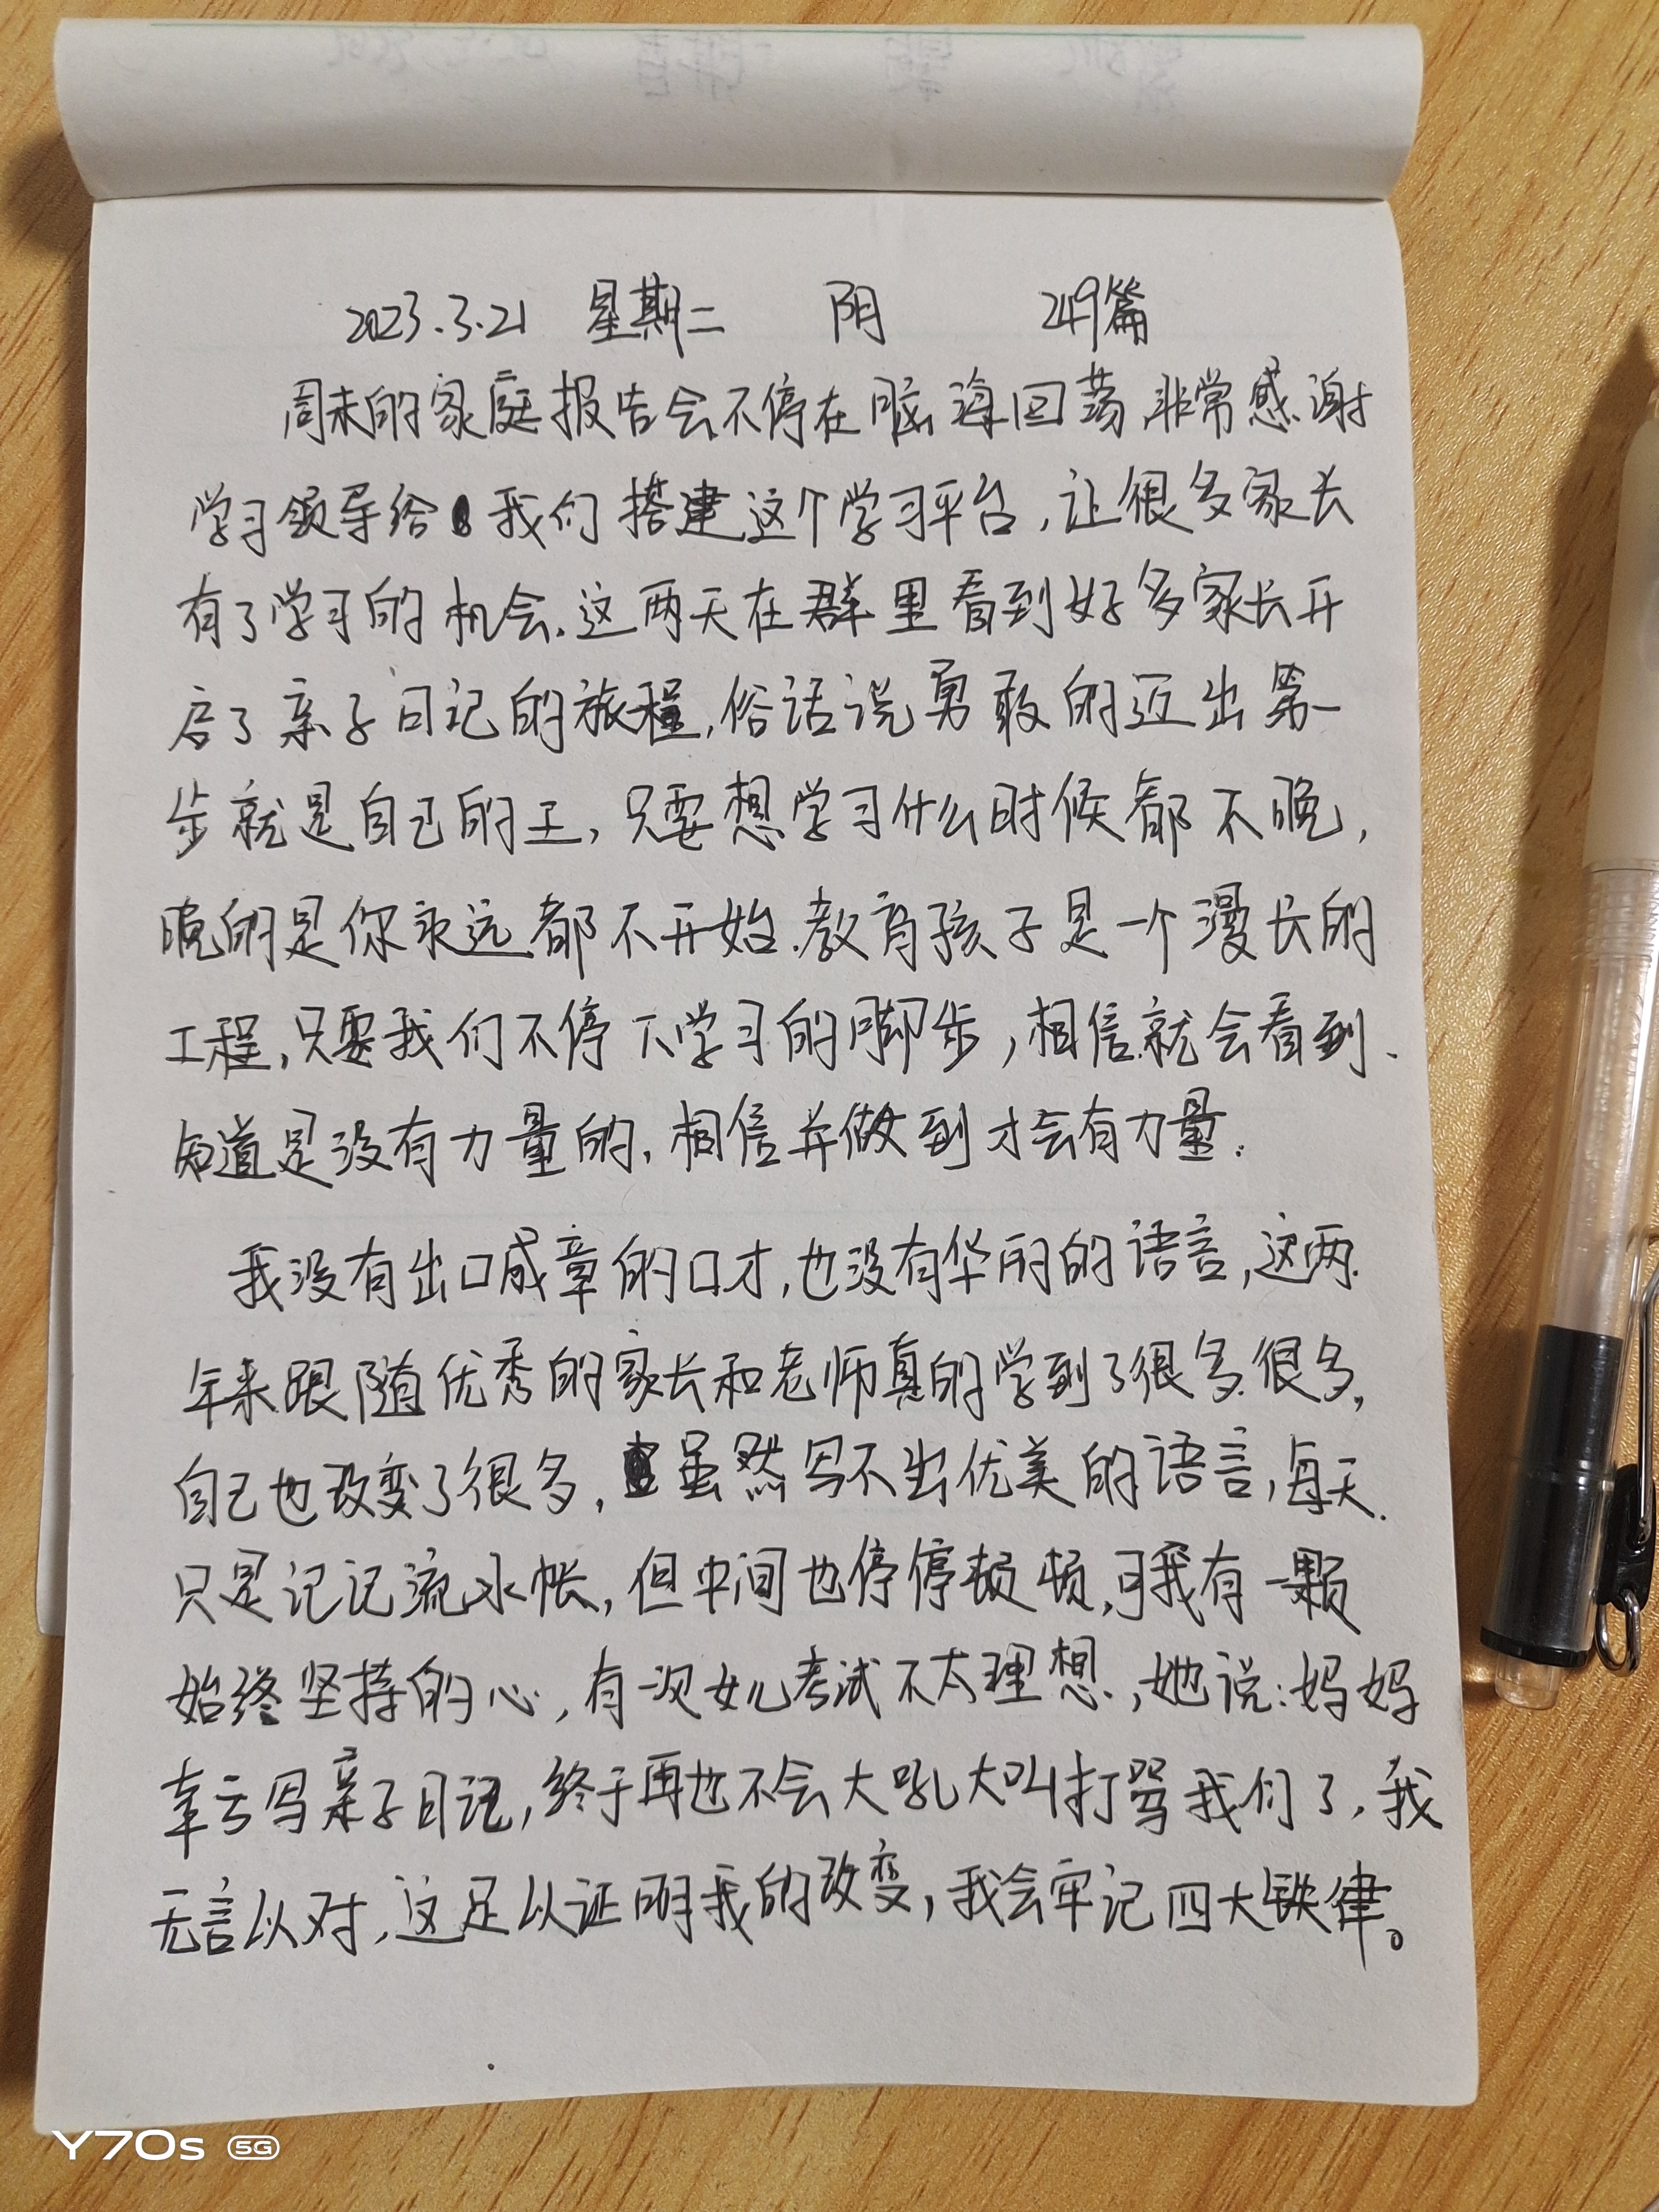 2023.3.21 星期二 阴 249篇
周末的家庭报告会不停在脑海回荡,非常感谢
学习领导给我们搭建这个学习平台,让很多家长
有了学习的机会.这两天在群里看到好多家长开
启了亲子日记的旅程,俗话说勇敢的迈出第一
步就是自己的王,只要想学习什么时候都不晚,
晚的是你永远都不开始.教育孩子是一个漫长的
工程,只要我们不停下学习的脚步,相信就会看到.
知道是没有力量的,相信并做到才会有力量.
我没有出口成章的口才,也没有华丽的语言,这两
年来跟随优秀的家长和老师真的学到了很多很多,
自己也改变了很多,虽然写不出优美的语言,每天
只是记记流水帐,但中间也停停顿顿,可我有一颗
始终坚持的心,有一次女儿考试不太理想,她说:妈妈
幸亏写亲子日记,终于再也不会大吼大叫打骂我们了,我
无言以对,这足以证明我的改变,我会牢记四大铁律。
Y70s 5G